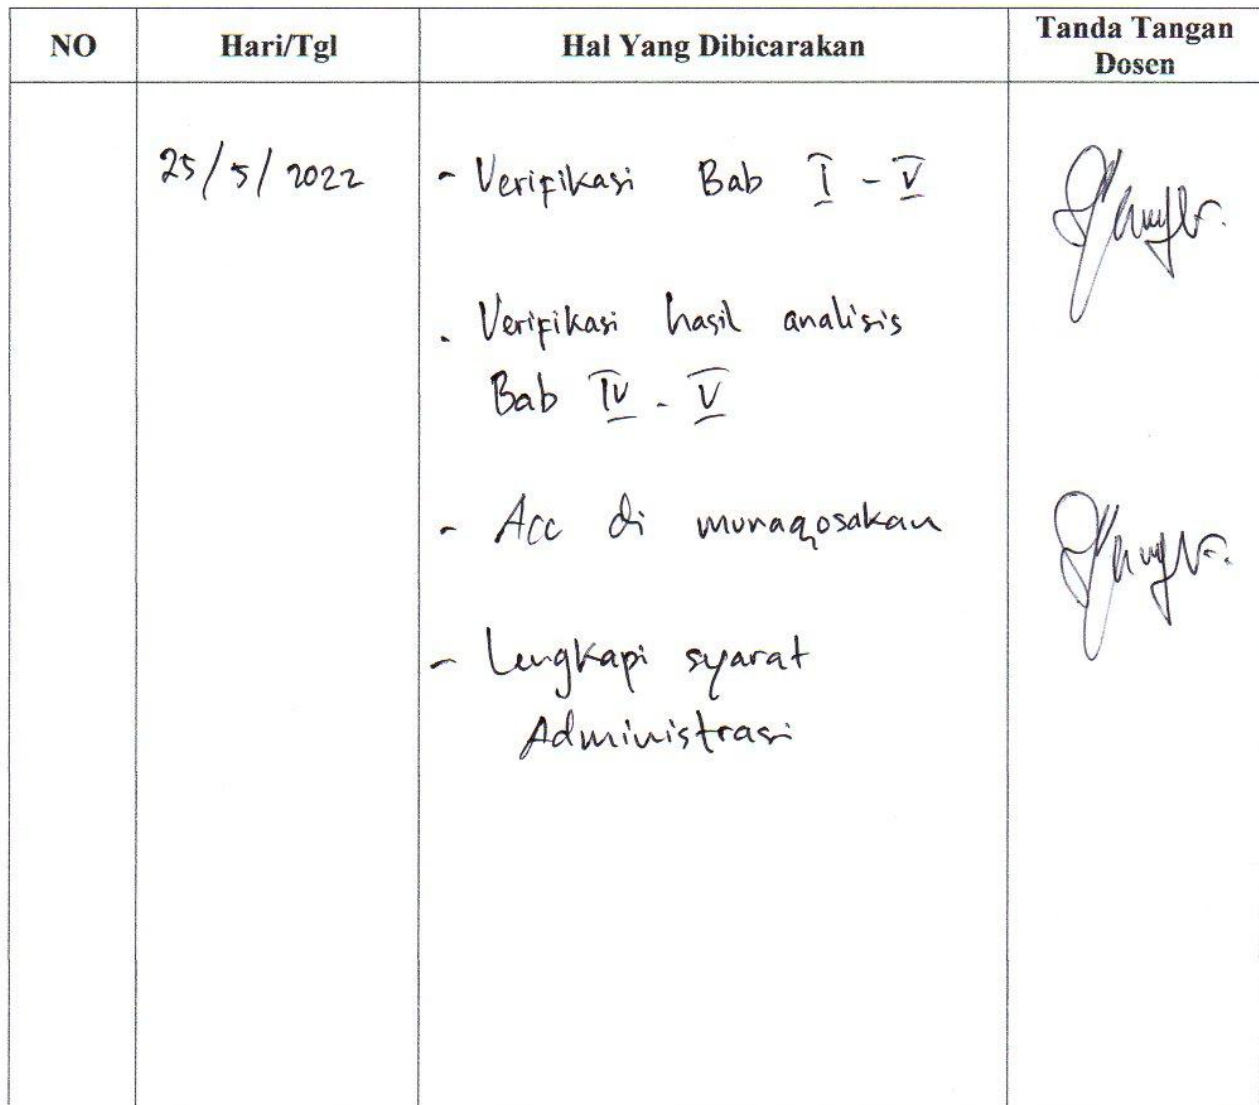 NO Hari/Tgl Hal Yang Dibicarakan Tanda Tangan
Dosen
25/5/2022 - Verifikasi Bab I - V
- Verifikasi hasil analisis
Bab IV - V
- Acc di munaqosakan
- Lengkapi syarat
Administrasi